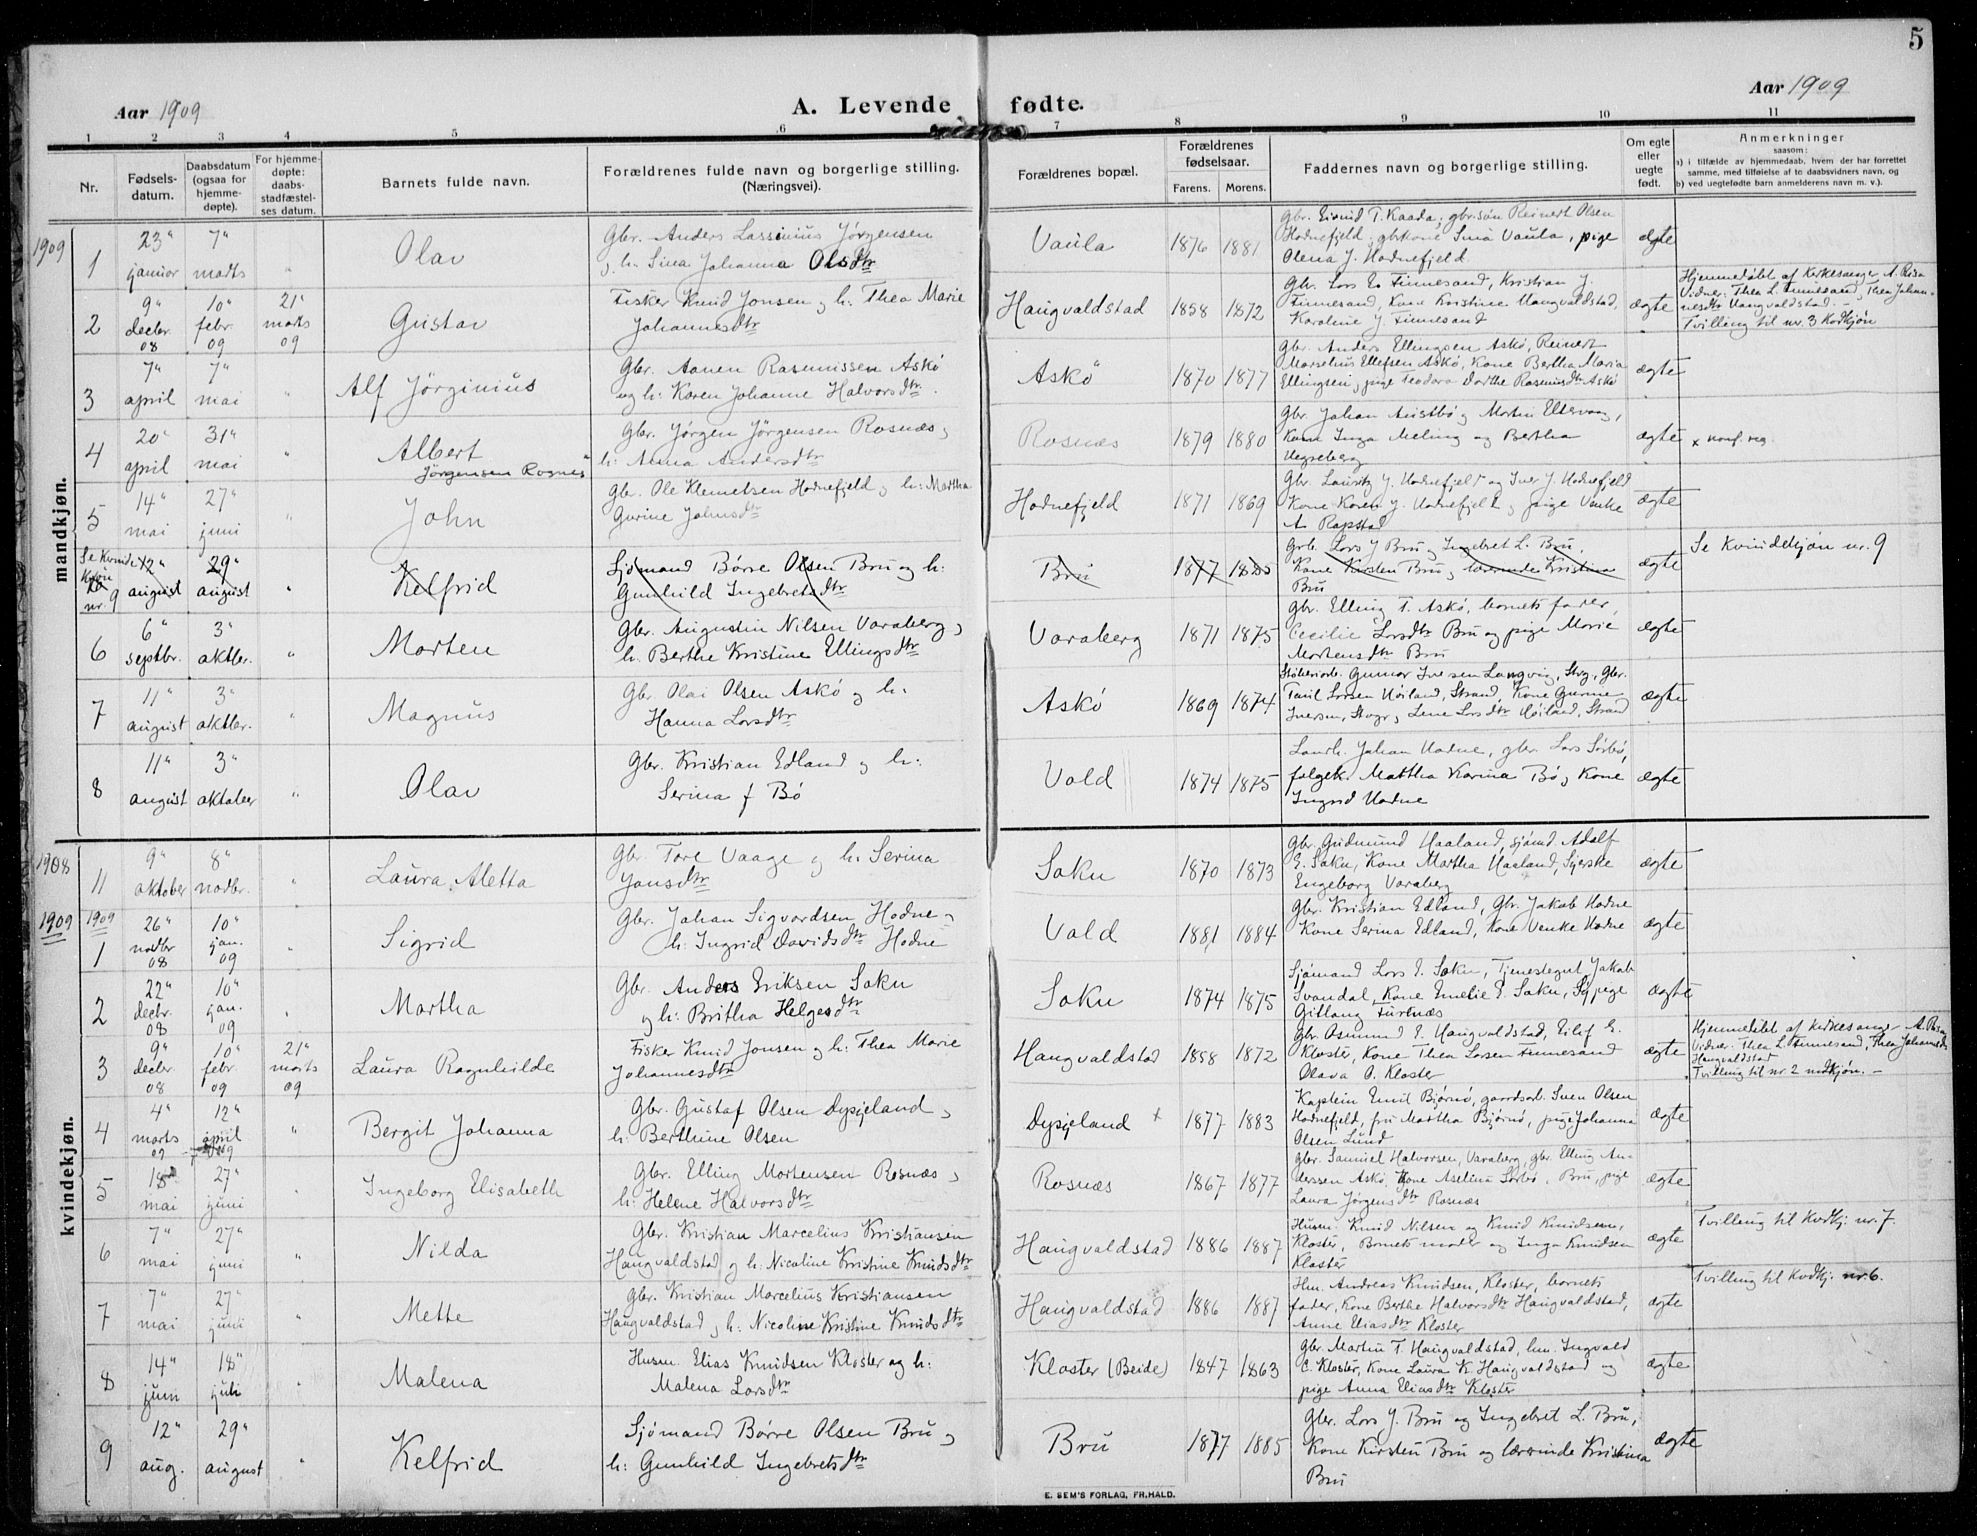 5
Aar 1909
A. Levende fødte.
Aar 1909
1 2 3 4 5 6 7 8 9 10 11
Nr.
Fødsels-
datum.
Daabsdatum
(ogsaa for
hjemme-
døpte).
For hjemme-
døpte:
daabs-
stadfæstel-
ses datum.
Barnets fulde navn.
Forældrenes fulde navn og borgerlige stilling.
(Næringsvei).
Forældrenes bopæl.
Forældrenes
fødselsaar.
Farens. Morens.
Faddernes navn og borgerlige stilling.
Om egte
eller
uegte
født.
Anmerkninger
saasom:
a) i tilfælde av hjemmedaab, hvem der har forrettet
samme, med tilføielse af to daabsvidners navn, og
b) ved uegtefødte barn anmelderens navn m. v.).
mandkjøn.
1909
1
23"
januar
7"
marts
"
Olav
Gbr. Anders Lassinius Jørgensen
, h. Sina Johanna Olsdtr
Vaula
1876 1881
Gbr. Eivind T. Kaada, gbr.søn Reinert Olsen
Hodnefjeld, gbrkone Sina Vaula, pige
Olena J. Hodnefjeld
ægte
2
9"
decbr.
08
10"
febr.
09
21"
marts
09
Gustav
Fisker Knud Jonsen og h. Thea Marie
Johannesdtr
Haugvaldstad
1858 1872
Gbr. Lars E. Finnesand, Kristian J.
Finnesand, Kone Kristine Haugvaldstad,
Karoline J. Finnesand
ægte
Hjemmedøbt af Kirkesanger A.
Vidner: Thea L. Finnesand, Thea Johan-
nesdtr Haugvaldstad. -
Tvilling til nr. 3 Kvdkjøn
3
7"
april
7"
mai
"
Alf Jörginius
Gbr. Aanen Rasmussen Askö
og h. Karen Johanne Halvorsdtr.
Askö
1870 1877
Gbr. Anders Ellingsen Askö, Reinert
Marselius Ellefsen Askö, Kone Bertha Maria
Ellingsen, pige Teodora Dorthe Rasmusdtr Askö
ægte
4
20"
april
31"
mai
"
Albert
Jörgensen Rosnes
Gbr. Jörgen Jörgensen Rosnæs,
h. Anna Andersdtr
Rosnæs
1879 1880
Gbr. Johan Austbö, Morten Eltervaag,
Kone Inga Meling og Bertha
ægte
x konf. reg.
5
14"
mai
27"
juni
"
John
Gbr. Ole Klemetsen Hodnefjeld, h. Martha
Gurine Johnsdtr
Hodnefjeld
1871 1869
Gbr. Lauritz J. Hodnefjeld og Iver J. Hodnefjeld
Kone Karen J. Hodnefjeld, pige Venke
A. Rapstad
ægte
Se Kvinde
Kjøn
nr. 9
12"
august
29"
august
"
Kelfrid
Sjömand Börre Olsen Bru og h:
Gunhild Ingebretsdtr
Bru
1877 1885
Gbr. Lars J. Bru, Ingebret L. Bru,
Kone Kirsten Bru, lærerinde Kristina
Bru
ægte
Se Kvindekjøn nr. 9
6
6"
septbr.
3"
oktbr.
"
Morten
Gbr. Augustin Nilsen Varaberg,
h. Berthe Kristine Ellingsdtr
Varaberg
1871 1875
Gbr. Elling T. Askö, barnets fader,
Cecilie Larsdtr Bru og pige Marie
Mortensdtr Bru
ægte
7
11"
august
3"
oktbr.
"
Magnus
Gbr. Olai Olsen Askö og h:
Hanna Larsdtr
Askö
1869 1874
Gunnar Iversen Langvig, Stvg, Gbr.
Paul Larsen Höiland, Strand, Kone Gurine
Iversen, Stvgr, Lene Larsdtr Höiland, Strand
ægte
8
11"
august
3"
oktober
"
Olav
Gbr. Kristian Edland og h:
Serina f Bö
Vold
1874 1875
Johan Hodne, gbr. Lars Sörbö,
folgek. Martha Karina Bö, Kone
Ingrid Hodne
ægte
kvindekjøn.
1908
11
9"
oktober
8"
novbr.
"
Laura Aletta
Gbr. Tore Vaage og h. Serina
Jonsdtr
Soku
1870 1873
Gbr. Gudmund Haaland, sjömd. Adolf
E. Soku, Kone Martha Haaland,
Engeborg Varaberg
ægte
1909
1909
1
26"
novbr
08
10"
jan.
09
"
Sigrid
Gbr. Johan Sigvardsen Hodne,
h. Ingrid Davidsdtr Hodne
Vold
1881 1884
Gbr. Kristian Edland, Gbr. Jakob Hodne
Kone Serina Edland, Kone Venke Hodne
ægte
2
22"
decbr.
08
10"
jan.
09
"
Martha
Gbr. Anders Eriksen Soku
og h. Britha Helgesdtr
Soku
1874 1875
Sjömand Lars E. Soku, Tjenestegut Jakob
Svandal, Kone Emelie E. Soku, pige
Gitlaug Furenæs
ægte
3
9"
decbr.
08
10"
febr.
09
21"
marts
09
Laura Ragnhilde
Fisker Knud Jonsen og h. Thea Marie
Johannesdtr
Haugvaldstad
1858 1872
Gbr. Osmund E. Haugvaldstad, Eilef E.
Kloster, Kone Thea Larsen Finnesand
Olava O. Kloster
ægte
Hjemmedøbt af Kirkesanger A.
Vidner: Thea L. Finnesand, Thea Johannesdtr
Haugvaldstad
Tvilling til nr 2 mdkjøn. -
4
4"
marts
09
12"
april
"
Bergit Johanna
Gbr. Gustaf Olsen Dysjeland,
h. Berthine Olsen
Dysjeland x
1877 1883
Kaptein Emil Bjørnø, gaardsarb. Sven Olsen
Hodnefjeld, fru Martha Bjørnø, pige Johanna
Olsen Lund
ægte
5
18"
mai
27"
juni
"
Ingeborg Elisabeth
Gbr. Elling Mortensen Rosnæs,
h. Helene Halvorsdtr
Rosnæs
1867 1877
Gbr. Samuel Halvorsen, Varaberg, gbr. Elling An-
derssen Askö, Kone Aselina Sörbö, Bru, pige
Laura Jørgensdtr Rosnæs
ægte
6
7"
mai
27"
juni
"
Nilda
Gbr. Kristian Marcelius Kristiansen
Haugvaldstad og h. Nicoline Kristine Knudsdtr
Haugvaldstad
1886 1887
Husm. Knud Nilsen og Knud Knudsen,
Kloster, Barnets moder og Inga Knudsen
Kloster
ægte
Tvilling til Kvdkj. nr. 7.
7
7"
mai
27"
juni
"
Mette
Gbr. Kristian Marcelius Kristiansen
Haugvaldstad, h. Nicoline Kristine Knudsdtr
Haugvaldstad
1886 1887
Hm. Andreas Knudsen, Kloster, barnets
fader, Kone Berthe Halvorsdtr Haugvaldstad,
Anne Eliasdtr Kloster
ægte
Tvilling til Kvdkj. nr. 6.
8
14"
juni
18"
juli
"
Malena
Husm. Elias Knudsen Kloster og h:
Malena Larsdtr
Kloster (Beide)
1847 1863
Gbr. Martin T. Haugvaldstad, hm. Ingvald
E. Kloster, Kone Laura K. Haugvaldstad og
pige Anna Eliasdtr Kloster
ægte
9
12"
aug.
29"
august
"
Kelfrid
Sjömand Börre Olsen Bru,
h: Gunhild Ingebretsdtr
Bru
1877 1885
Gbr. Lars J. Bru og Ingebret L. Bru,
Kone Kirsten Bru og lærerinde Kristina
Bru
ægte
E. SEM'S FORLAG, FR.HALD.